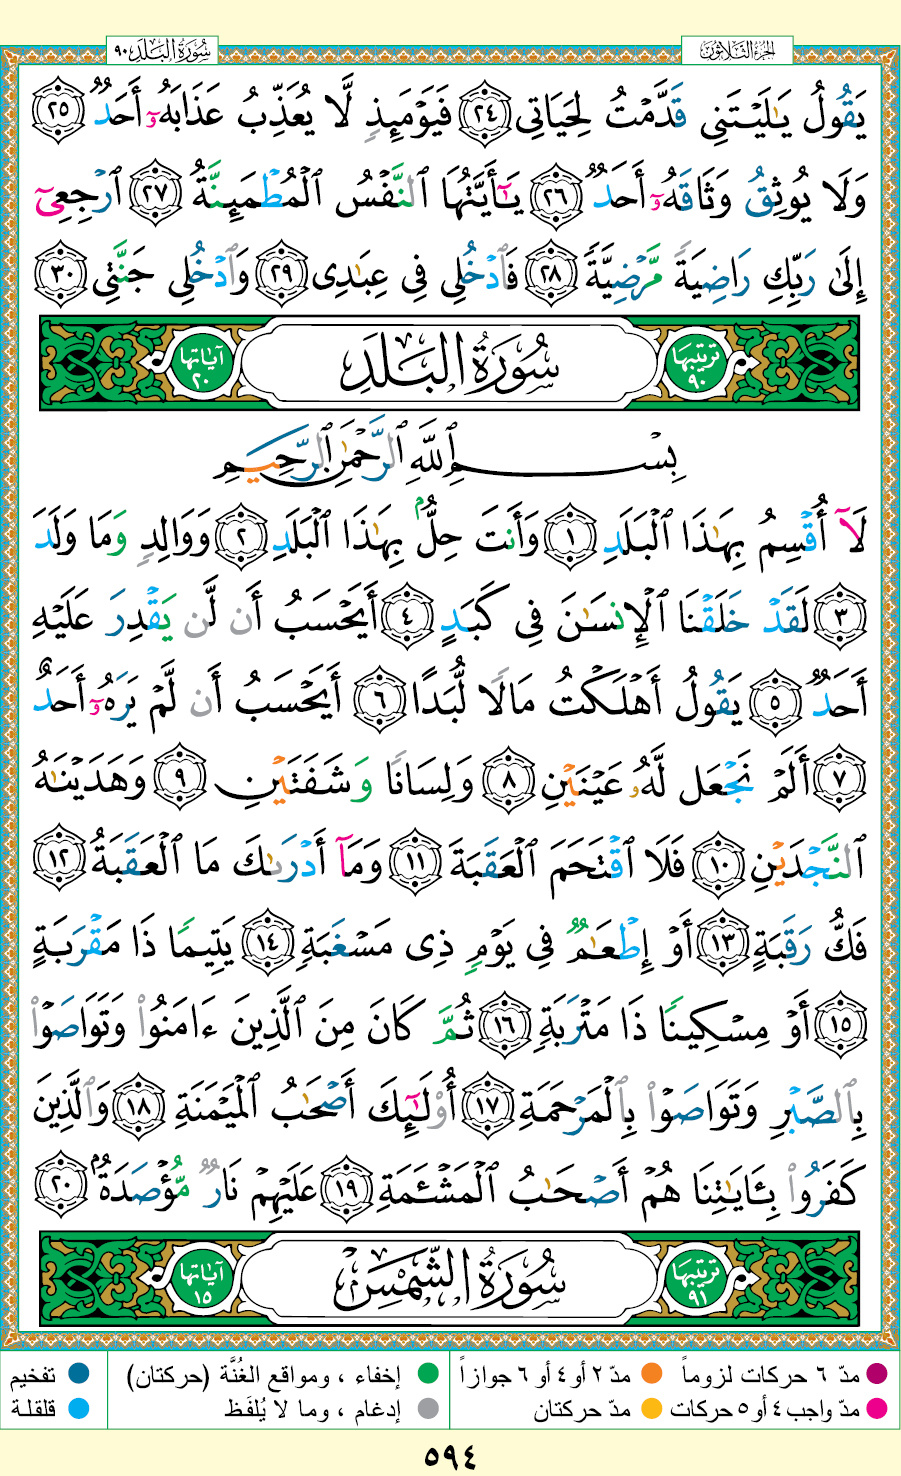 سُورَةُ البَلَد ٩٠
الجُزءُ الثَّلَاثُونَ
يَقُولُ يَـٰلَيْتَنِى قَدَّمْتُ لِحَيَاتِى ٢٤ فَيَوْمَئِذٍ لَّا يُعَذِّبُ عَذَابَهُۥٓ أَحَدٌ ٢٥
وَلَا يُوثِقُ وَثَاقَهُۥٓ أَحَدٌ ٢٦ يَـٰٓأَيَّتُهَا ٱلنَّفْسُ ٱلْمُطْمَئِنَّةُ ٢٧ ٱرْجِعِىٓ
إِلَىٰ رَبِّكِ رَاضِيَةً مَّرْضِيَّةً ٢٨ فَٱدْخُلِى فِى عِبَـٰدِى ٢٩ وَٱدْخُلِى جَنَّتِى ٣٠
ترتيبها ٩٠ سُورَةُ البَلَدِ آياتها ٢٠
بِسْمِ ٱللَّهِ ٱلرَّحْمَـٰنِ ٱلرَّحِيمِ
لَآ أُقْسِمُ بِهَـٰذَا ٱلْبَلَدِ ١ وَأَنتَ حِلٌّۢ بِهَـٰذَا ٱلْبَلَدِ ٢ وَوَالِدٍ وَمَا وَلَدَ
٣ لَقَدْ خَلَقْنَا ٱلْإِنسَـٰنَ فِى كَبَدٍ ٤ أَيَحْسَبُ أَن لَّن يَقْدِرَ عَلَيْهِ
أَحَدٌ ٥ يَقُولُ أَهْلَكْتُ مَالًا لُّبَدًا ٦ أَيَحْسَبُ أَن لَّمْ يَرَهُۥٓ أَحَدٌ
٧ أَلَمْ نَجْعَل لَّهُۥ عَيْنَيْنِ ٨ وَلِسَانًا وَشَفَتَيْنِ ٩ وَهَدَيْنَـٰهُ
ٱلنَّجْدَيْنِ ١٠ فَلَا ٱقْتَحَمَ ٱلْعَقَبَةَ ١١ وَمَآ أَدْرَىٰكَ مَا ٱلْعَقَبَةُ ١٢
فَكُّ رَقَبَةٍ ١٣ أَوْ إِطْعَـٰمٌ فِى يَوْمٍ ذِى مَسْغَبَةٍ ١٤ يَتِيمًا ذَا مَقْرَبَةٍ
١٥ أَوْ مِسْكِينًا ذَا مَتْرَبَةٍ ١٦ ثُمَّ كَانَ مِنَ ٱلَّذِينَ ءَامَنُوا۟ وَتَوَاصَوْا۟
بِٱلصَّبْرِ وَتَوَاصَوْا۟ بِٱلْمَرْحَمَةِ ١٧ أُو۟لَـٰٓئِكَ أَصْحَـٰبُ ٱلْمَيْمَنَةِ ١٨ وَٱلَّذِينَ
كَفَرُوا۟ بِـَٔايَـٰتِنَا هُمْ أَصْحَـٰبُ ٱلْمَشْـَٔمَةِ ١٩ عَلَيْهِمْ نَارٌ مُّؤْصَدَةٌۢ ٢٠
ترتيبها ٩١ سُورَةُ الشَّمْسِ آياتها ١٥
مدّ ٦ حركات لزوماً مدّ ٢ أو ٤ أو ٦ جوازاً إخفاء ، ومواقع الغُنَّة (حركتان) تفخيم
مدّ واجب ٤ أو ٥ حركات مدّ حركتان إدغام ، وما لا يُلفَظ قلقلة
٥٩٤